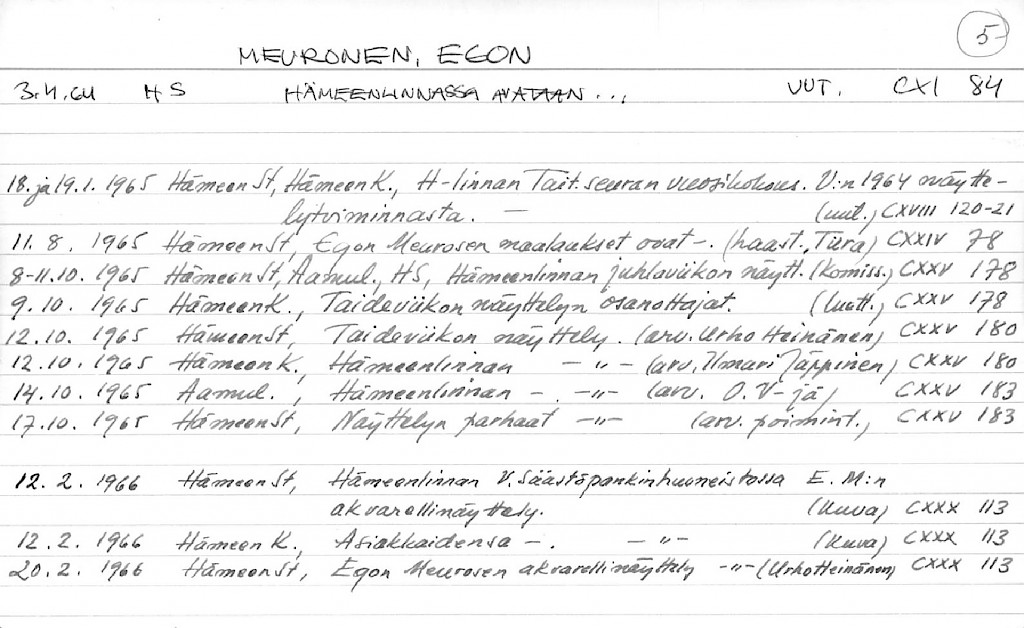 5
MEURONEN, EGON
3.4.64 HS HÄMEENLINNASSA AVATAAN... UUT. CXI 84
18. ja 19.1. 1965 HämeenSt, HämeenK., H-linnan Tait.seuran vuosikokous. V:n 1964 näytte-
lytoiminnasta. — (uut.) CXVIII 120-21
11. 8. 1965 HämeenSt, Egon Meurosen maalaukset ovat -. (haast., Türa) CXXIV 78
8-11.10. 1965 HämeenSt, Aamul., HS, Hämeenlinnan juhlaviikon näytt. (komiss.) CXXV 178
9.10. 1965 HämeenK., Taideviikon näyttelyn osanottajat. (luett.) CXXV 178
12.10. 1965 HämeenSt, Taideviikon näyttely. (arv. Urho Heinänen) CXXV 180
12.10. 1965 HämeenK., Hämeenlinnan -"- (arv. Ilmari Jäppinen) CXXV 180
14.10. 1965 Aamul., Hämeenlinnan -. -"- (arv. O. V-jä) CXXV 183
17.10. 1965 HämeenSt, Näyttelyn parhaat -"- (arv. poimint.) CXXV 183
12. 2. 1966 HämeenSt, Hämeenlinnan V. Säästöpankinhuoneistossa E. M:n
akvarellinäyttely. (kuva) CXXX 113
12. 2. 1966 HämeenK., Asiakkaidensa -. -"- (kuva) CXXX 113
20.2. 1966 HämeenSt, Egon Meurosen akvarellinäyttely -"- (Urho Heinänen) CXXX 113